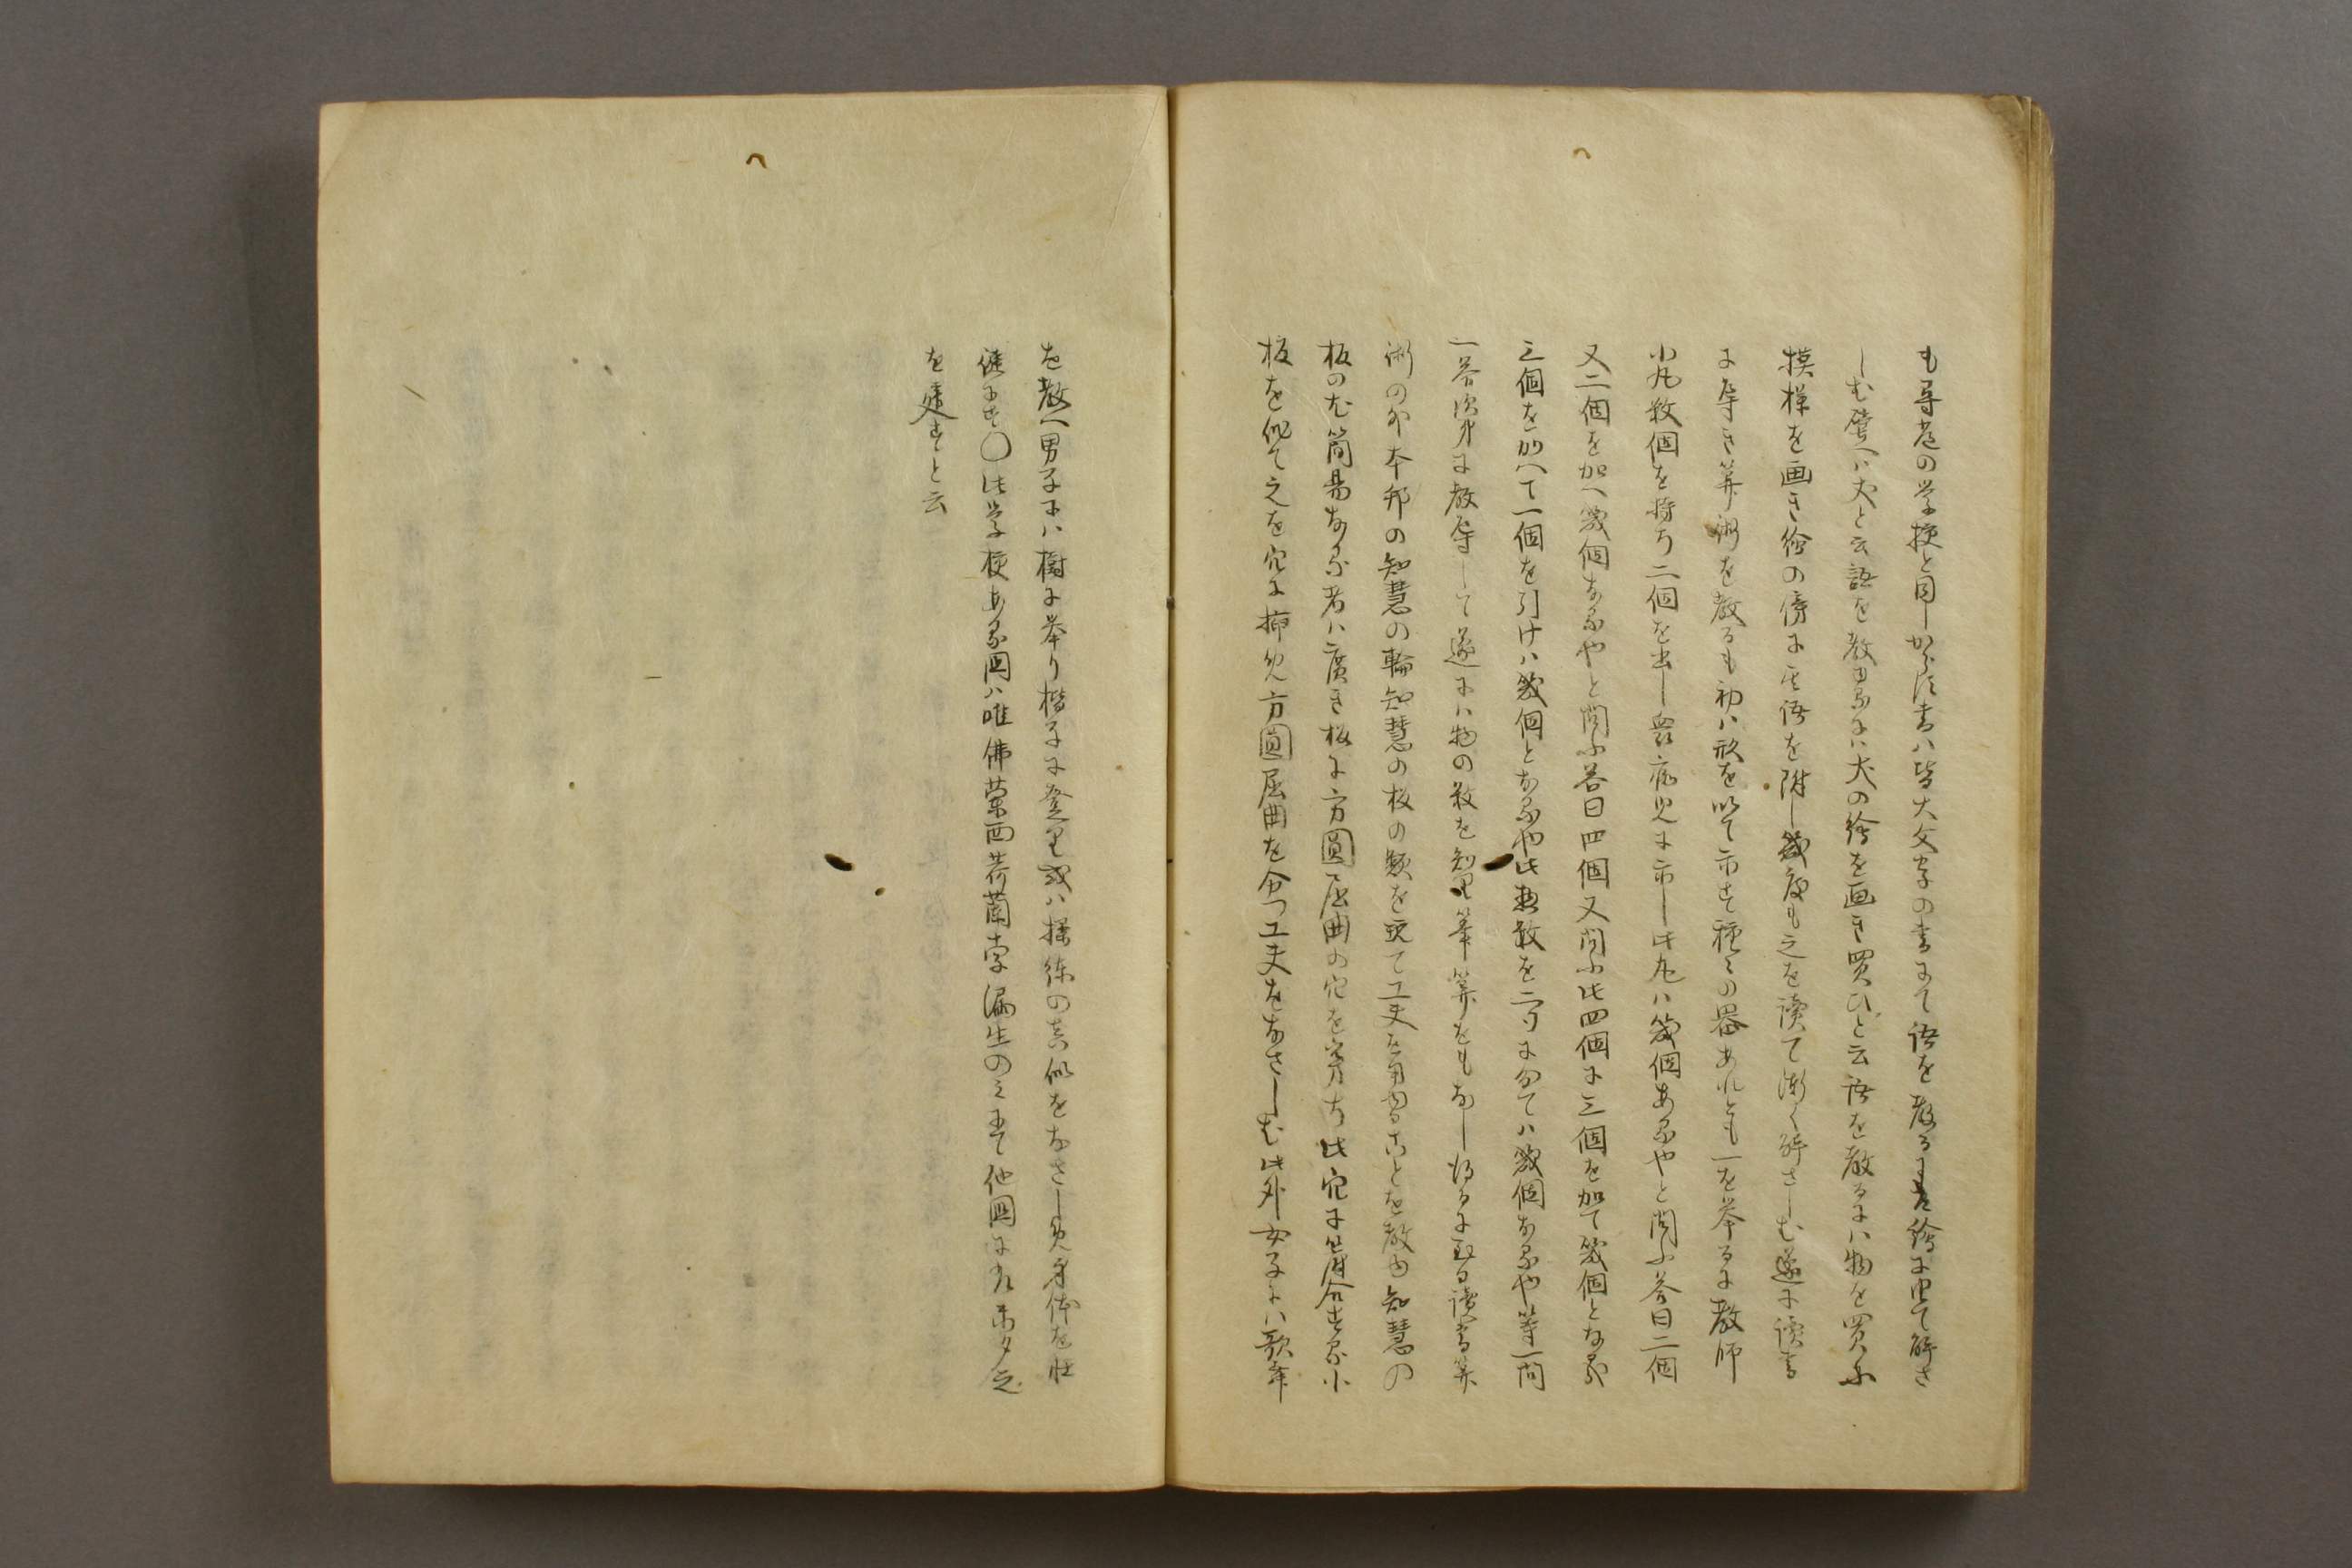 も尋常の学校と同しからす書ハ皆大文字の書にて語を教るも絵に画て解さ
しむ譬ヘハ犬と云語を教ゆるにハ犬の絵を画き買ひと云語を教るにハ物を買ふ
摸様を画き絵の傍に其語を附し幾度も之を読て漸く解さしむ遂に読書
に序き算術を教るも初ハ形を以て示す種々の器あれとも一を挙るに教師
小丸数個を持ち二個を出し衆痴児に示し此丸ハ幾個あるやと問ふ答曰二個
又二個を加ヘ幾個なるやと問ふ答曰四個又問ふ此四個に三個を加て幾個となる
三個を加ヘて一個を引けハ幾個となるや此惣数を二ツに分てハ幾個なるや等一問
一答次第に教導して遂にハ物の数を知り筆算をもなし得るに至る読書算
術の外本邦の知慧の輪知慧の板の類を玩て工夫を用ることを教ゆ知慧の
板の尤簡易なる者ハ広き板に方圓屈曲の穴を穿ち此穴に符合する小
板を似て之を穴に挿め方圓屈曲を合つ工夫をなさしむ此外女子にハ歌舞
を教ヘ男子にハ樹に挙り楷子に登り或ハ操練の真似をなさしめ身体を壮
健にす〇此学校ある国ハ唯佛蘭西荷蘭孛漏生のミにて他国にハ未タ之
を建すと云